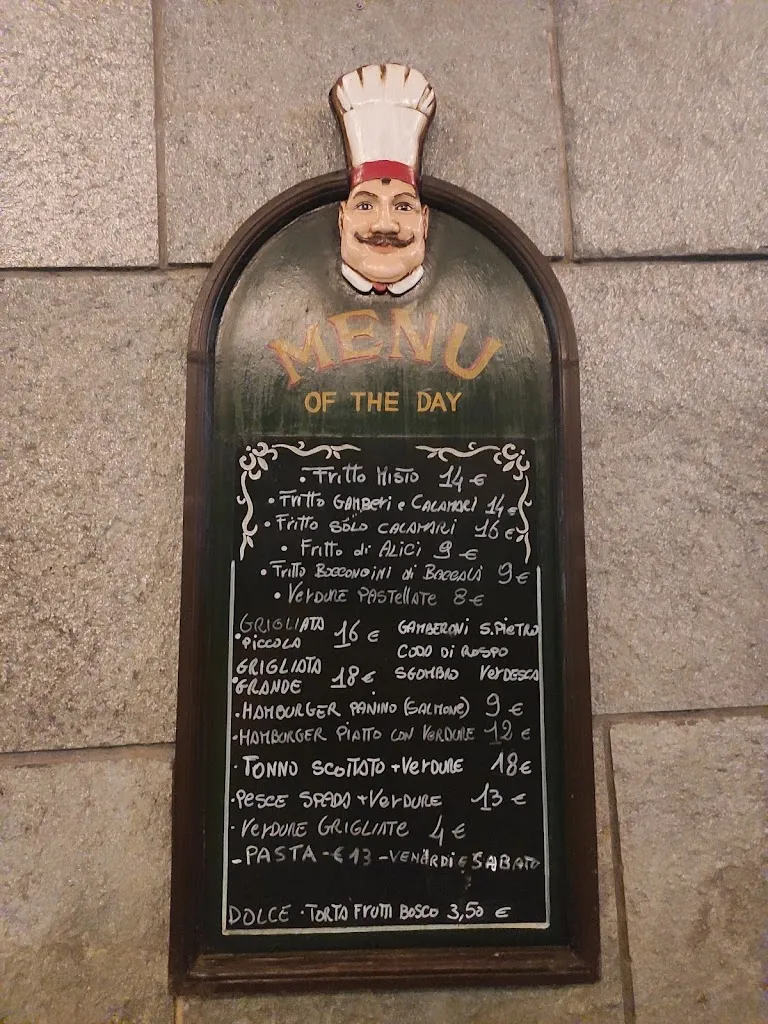 MENU
OF THE DAY
• Fritto Misto 14 €
• Fritto GAMBERi e CALAMARI 14 €
• Fritto SOLO CALAMARI 16 €
• Fritto di ALICI 9 €
• Fritto BOCCONCINI di BACCALÀ 9 €
• VERDURE PASTELLATE 8 €
• GRIGLIATA PICCOLA 16 € GAMBERONI S.PIETRO
CODA DI ROSPO
• GRIGLIATA GRANDE 18 € SGOMBRO VERDESCA
• HAMBURGER PANINO (SALMONE) 9 €
• HAMBURGER PIATTO CON VERDURE 12 €
• TONNO SCOTTATO + VERDURE 18 €
• PESCE SPADA + VERDURE 13 €
• VERDURE GRIGLIATE 4 €
- PASTA - € 13 - VENERDI E SABATO
DOLCE • TORTA FRUTTI BOSCO 3,50 €